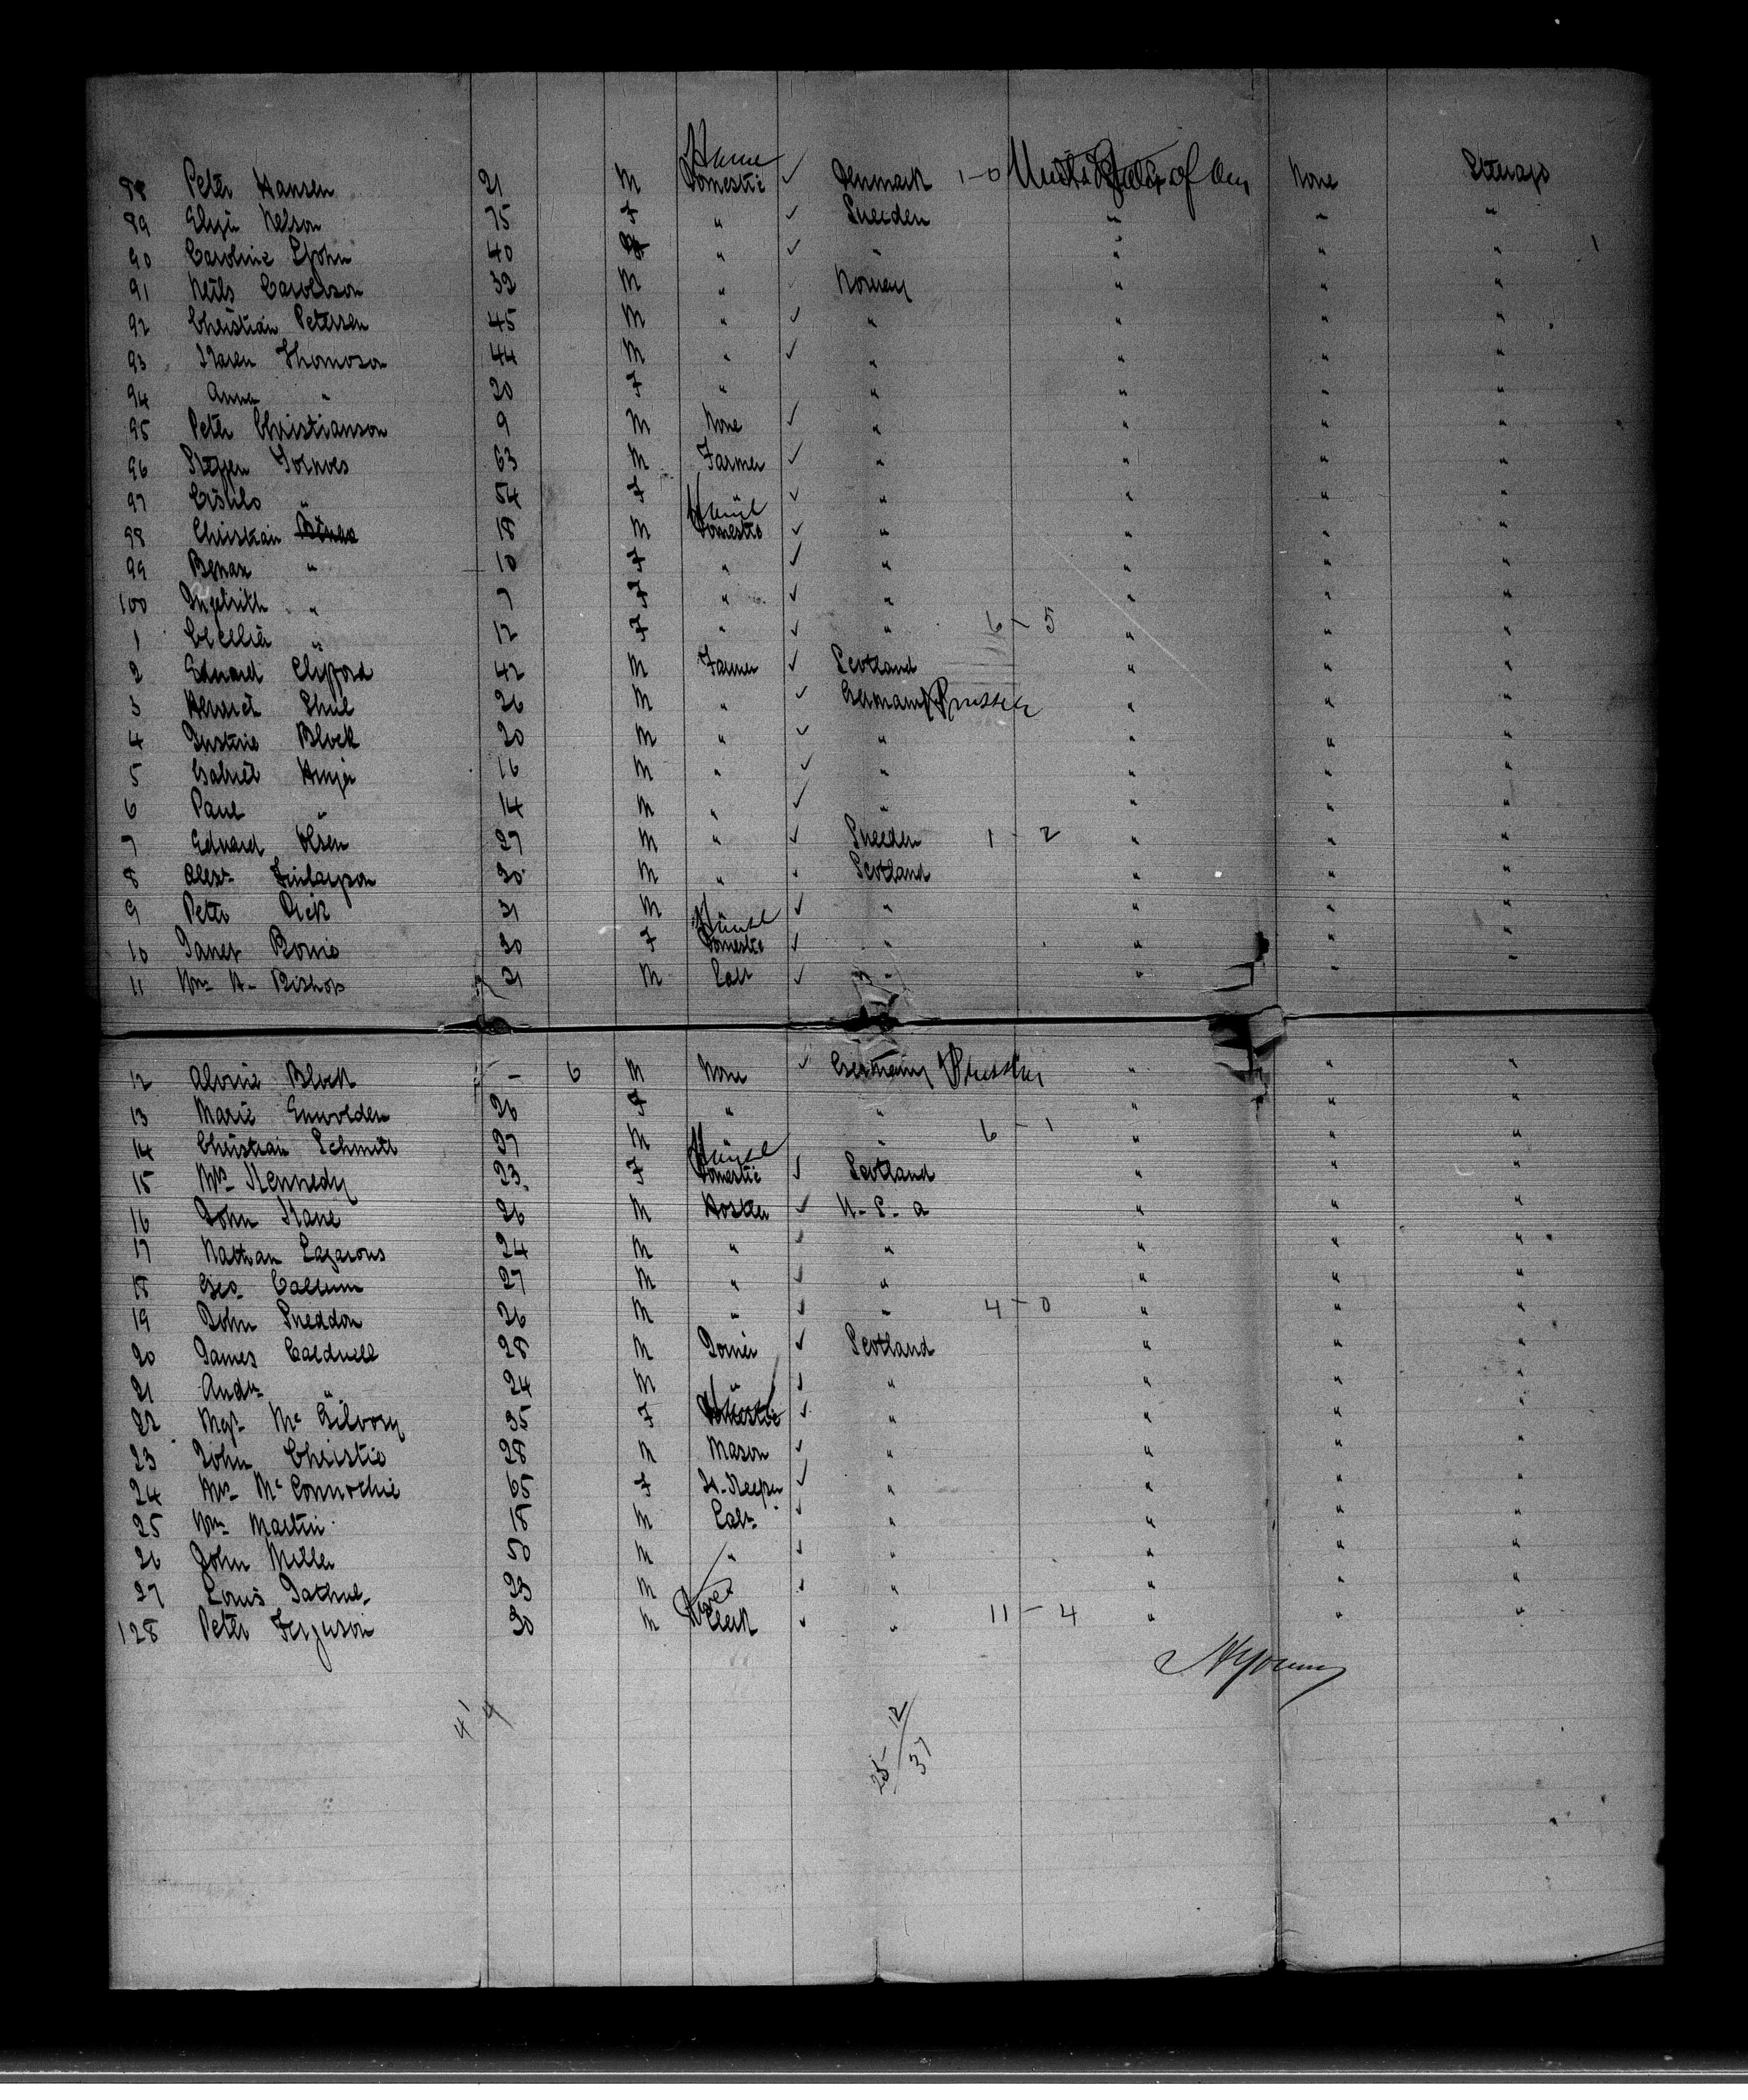 88 Peter Hansen 21 M Domestic ✓ Denmark 1-0 United States of Am None Steerage
89 Nelson 75 F " ✓ Sweden " " "
90 Caroline 40 " ✓ " " " "
91 Neils 32 M " Norway " " "
92 Christian Petersen 45 M " ✓ " " " "
93 Karen Thomoson 44 M " ✓ " " " "
94 Anna " 20 F " " " " "
95 Peter Christianson 9 M None ✓ " " " "
96 63 M Farmer ✓ " " " "
97 " 54 F House ✓ " " " "
98 Christian 18 M Domestic ✓ " " " "
99 " 10 F " ✓ " " " "
100 " 7 F " ✓ " " " "
1 Cecilia " 12 F " ✓ " 6-5 " " "
2 Edward Clifford 42 M Farmer ✓ Scotland " " "
3 26 M " ✓ Germany Prussia " " "
4 Block 20 M " ✓ " " " "
5 Gabriel 16 M " ✓ " " " "
6 Paul " 14 M " ✓ " " " "
7 Edward Olsen 27 M " ✓ Sweden 1-2 " " "
8 Alexr Finlayson 30 M " Scotland " " "
9 Peter Dick 31 M " ✓ " " " "
House
10 Janet 30 F Domestic ✓ " " " "
11 Wm A. Bishop 21 M Labr ✓ " " " "
12 Block - 6 M None ✓ Germany Prussia " " "
13 Marie 26 F " " " " "
14 Christian Schmitt 37 M " 6-1 " " "
House
15 Mrs Kennedy 23 F Domestic ✓ Scotland " " "
16 John Kane 26 M Hostler ✓ U.S.a " " "
17 Nathan Lazarous 24 M " ✓ " " " "
18 Geo. Callum 27 M " ✓ " " " "
19 John Sneddon 26 M " ✓ " 4-0 " " "
20 James Caldwell 28 M Joiner ✓ Scotland " " "
21 Andw " 24 M " ✓ " " " "
22 Mgt Mc Gilvory 35 F ✓ " " " "
23 John Christie 28 M Mason ✓ " " " "
24 Mrs McConnochie 65 F H. Keeper ✓ " " " "
25 Wm Martin 18 M Labr ✓ " " " "
26 John Miller 50 M " ✓ " " " "
27 Louis 23 M ✓ " " " "
128 Peter Ferguson 30 M Clerk ✓ " 11-4 " " "
25 12/37